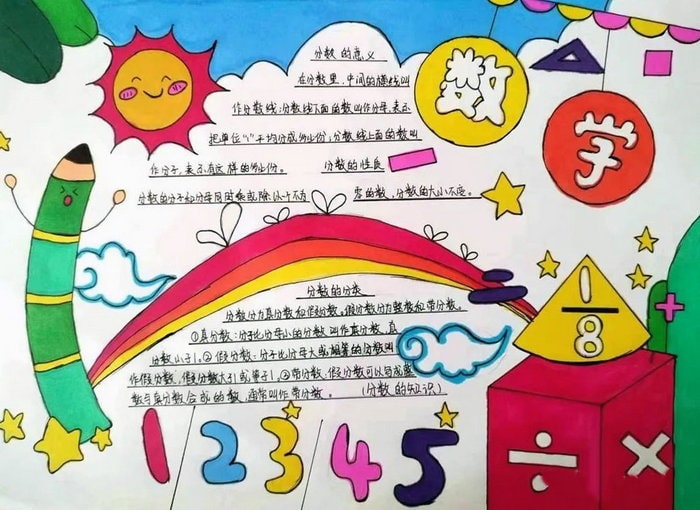 数
学
分数的意义
在分数里,中间的横线叫
作分数线;分数线下面的数叫作分母,表示
把单位“1”平均分成多少份;分数线上面的数叫
作分子,表示有这样的多少份。
分数的性质
分数的分子和分母同时乘或除以一个不为零的数,分数的大小不变。
分数的分类
分数分为真分数和假分数。假分数分为整数和带分数。
①真分数:分子比分母小的分数叫作真分数,真
分数小于1。②假分数:分子比分母大或相等的分数叫
作假分数,假分数大于1或等于1。③带分数,假分数可以写成整
数与真分数合成的数,通常叫作带分数。(分数的知识)
1
8
÷ ×
+
1 2 3 4 5